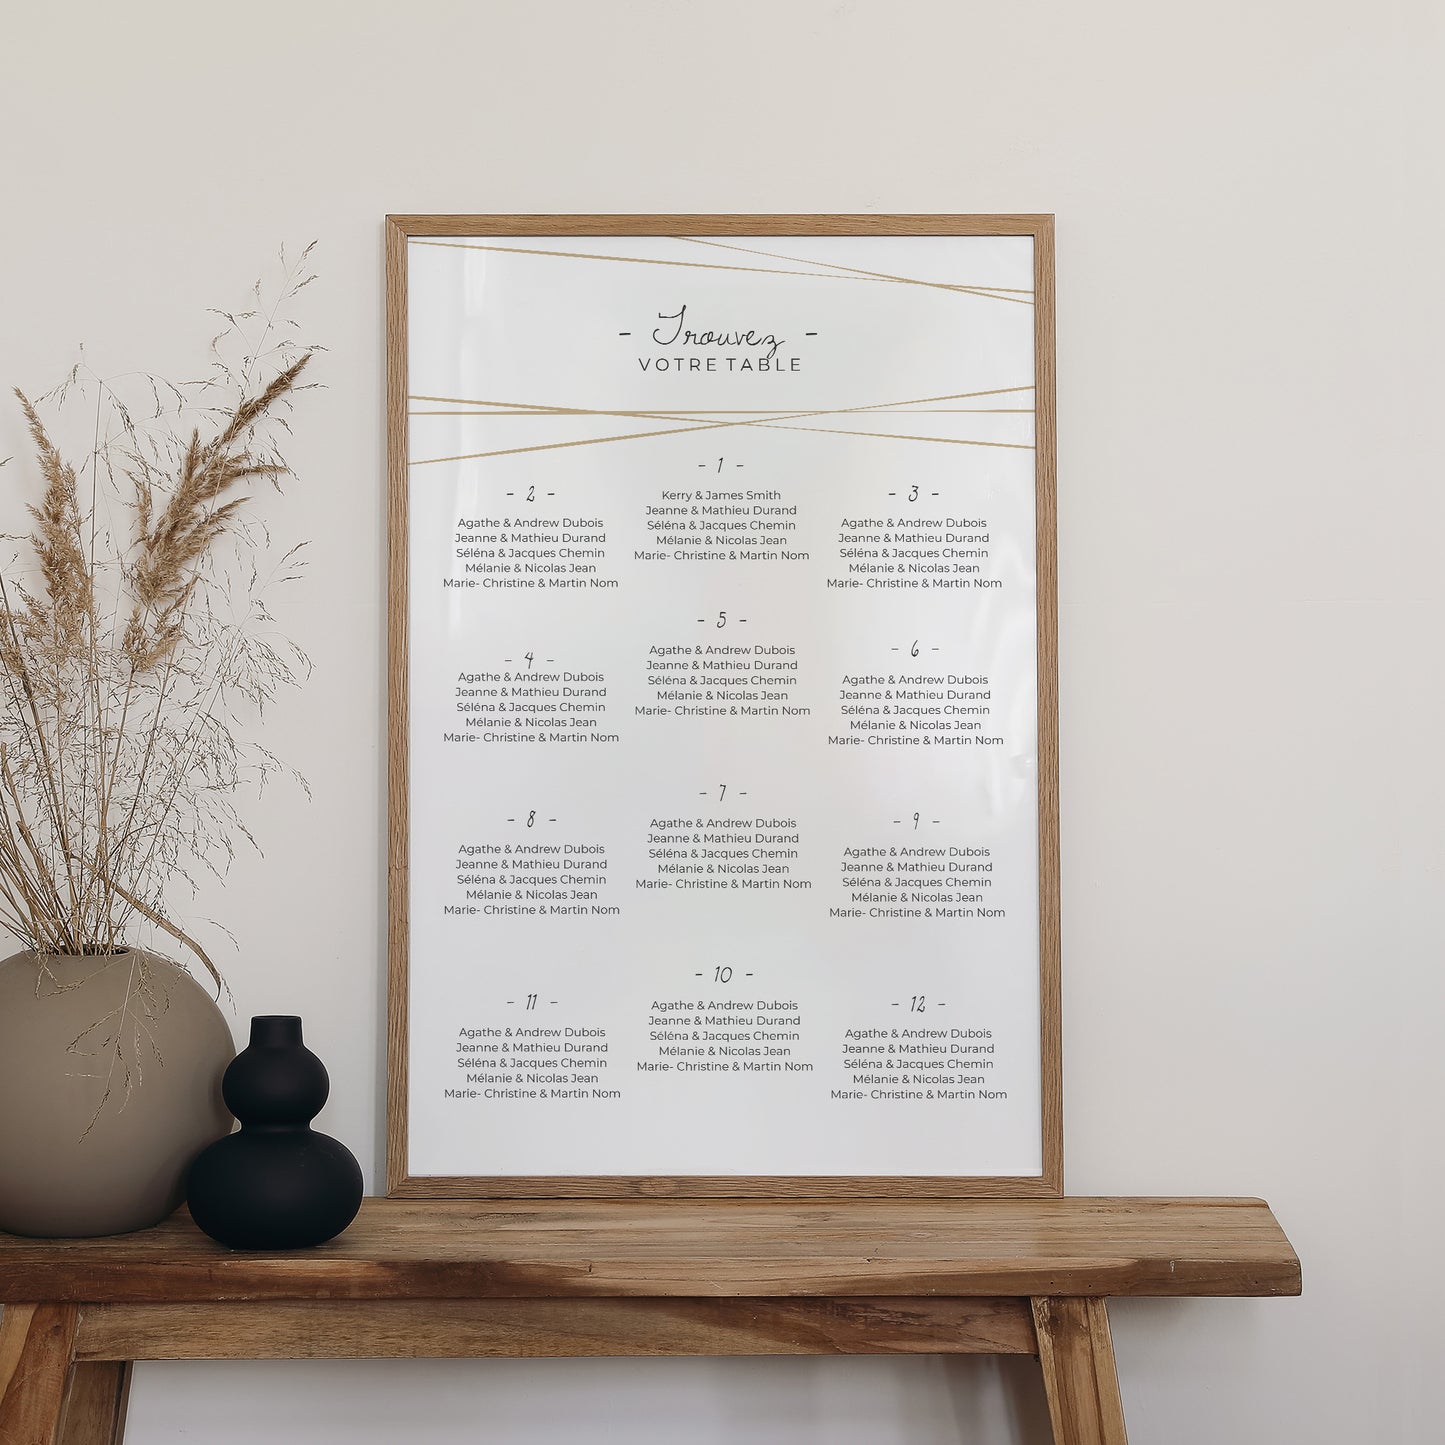 - Trouvez -
VOTRE TABLE
- 1 -
Kerry & James Smith
Jeanne & Mathieu Durand
Séléna & Jacques Chemin
Mélanie & Nicolas Jean
Marie- Christine & Martin Nom
- 2 -
Agathe & Andrew Dubois
Jeanne & Mathieu Durand
Séléna & Jacques Chemin
Mélanie & Nicolas Jean
Marie- Christine & Martin Nom
- 3 -
Agathe & Andrew Dubois
Jeanne & Mathieu Durand
Séléna & Jacques Chemin
Mélanie & Nicolas Jean
Marie- Christine & Martin Nom
- 4 -
Agathe & Andrew Dubois
Jeanne & Mathieu Durand
Séléna & Jacques Chemin
Mélanie & Nicolas Jean
Marie- Christine & Martin Nom
- 5 -
Agathe & Andrew Dubois
Jeanne & Mathieu Durand
Séléna & Jacques Chemin
Mélanie & Nicolas Jean
Marie- Christine & Martin Nom
- 6 -
Agathe & Andrew Dubois
Jeanne & Mathieu Durand
Séléna & Jacques Chemin
Mélanie & Nicolas Jean
Marie- Christine & Martin Nom
- 7 -
Agathe & Andrew Dubois
Jeanne & Mathieu Durand
Séléna & Jacques Chemin
Mélanie & Nicolas Jean
Marie- Christine & Martin Nom
- 8 -
Agathe & Andrew Dubois
Jeanne & Mathieu Durand
Séléna & Jacques Chemin
Mélanie & Nicolas Jean
Marie- Christine & Martin Nom
- 9 -
Agathe & Andrew Dubois
Jeanne & Mathieu Durand
Séléna & Jacques Chemin
Mélanie & Nicolas Jean
Marie- Christine & Martin Nom
- 10 -
Agathe & Andrew Dubois
Jeanne & Mathieu Durand
Séléna & Jacques Chemin
Mélanie & Nicolas Jean
Marie- Christine & Martin Nom
- 11 -
Agathe & Andrew Dubois
Jeanne & Mathieu Durand
Séléna & Jacques Chemin
Mélanie & Nicolas Jean
Marie- Christine & Martin Nom
- 12 -
Agathe & Andrew Dubois
Jeanne & Mathieu Durand
Séléna & Jacques Chemin
Mélanie & Nicolas Jean
Marie- Christine & Martin Nom